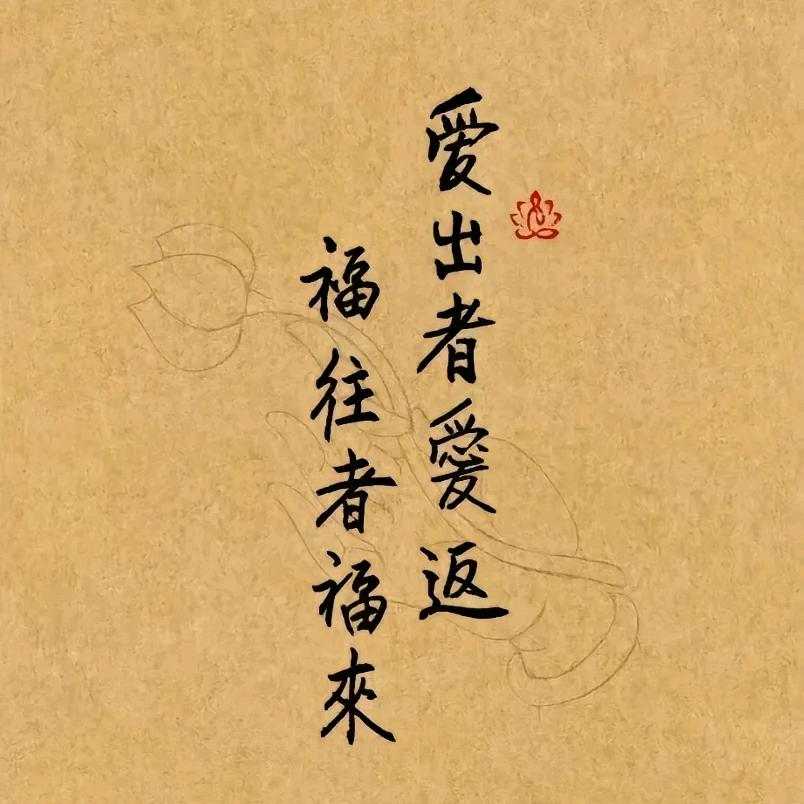 爱出者愛返
福往者福來